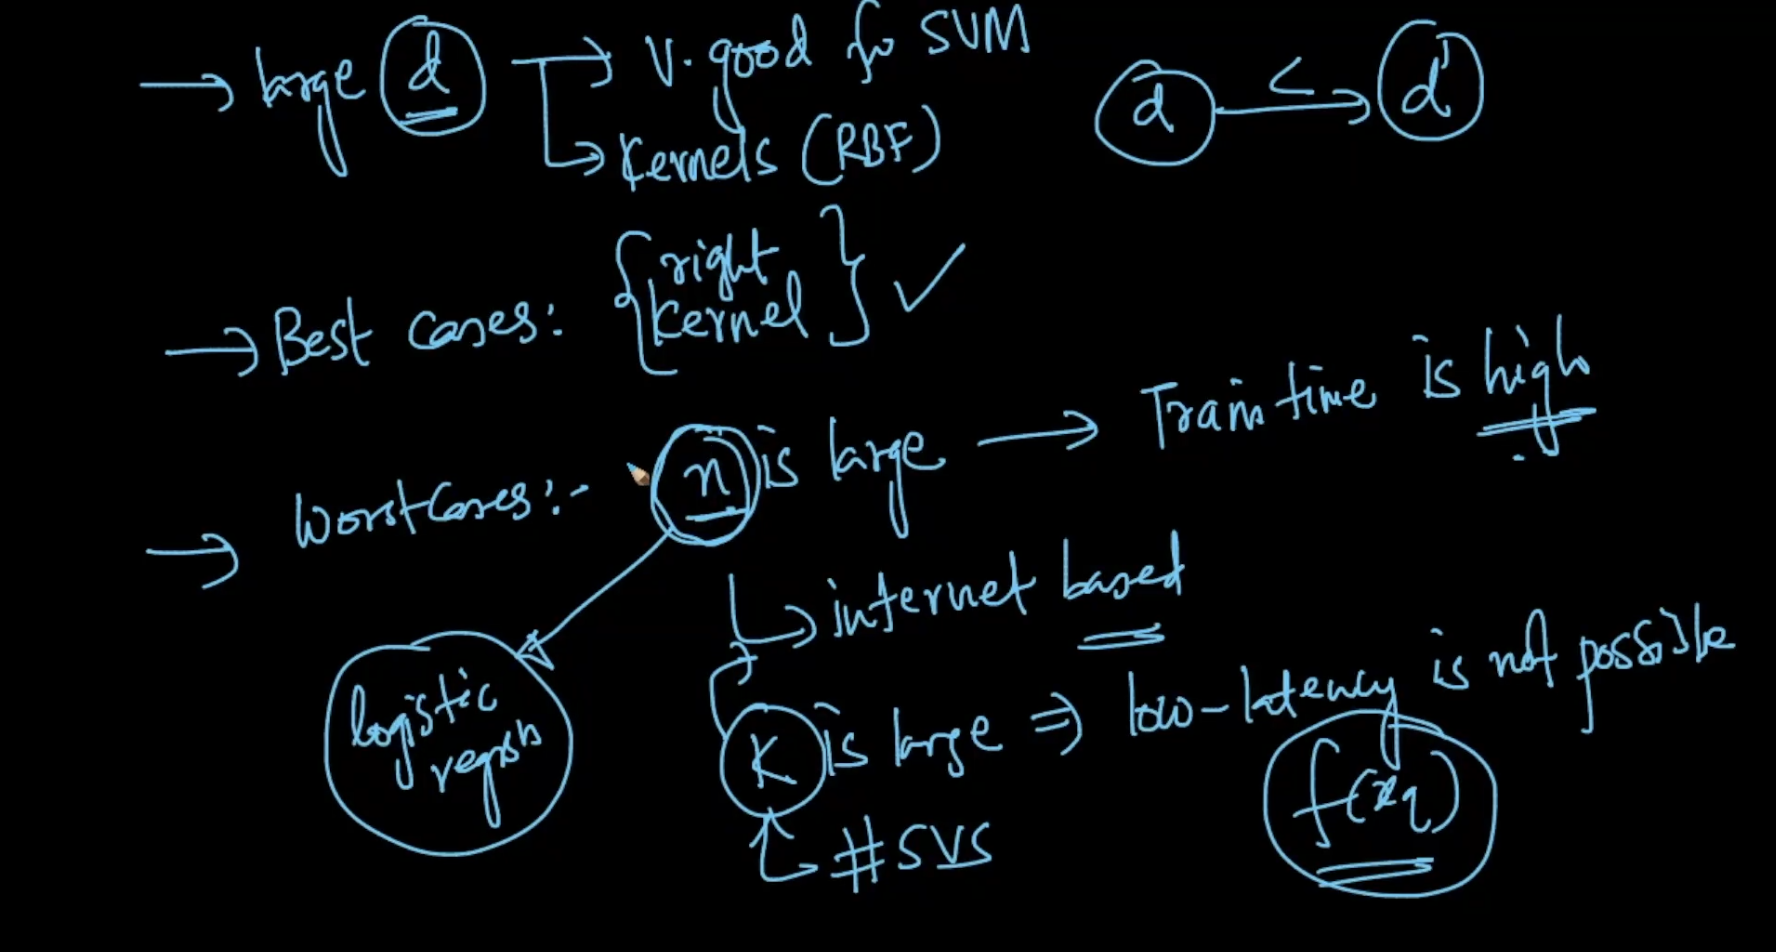 → large d → V. good for SVM
→ Kernels (RBF)
d < → d'
→ Best cases: {right kernel} ✓
→ Worst cases:- n is large → Train time is high
↳ internet based
logistic
K is large ⇒ low-latency is not possible
f(xq)
↳ #SVS